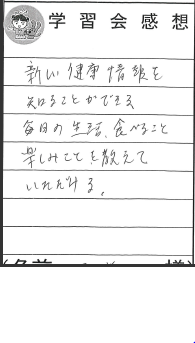 学習会感想
新しい健康情報を
知ることができる
毎日の生活、食べること
楽しみごとを教えて
いただける。